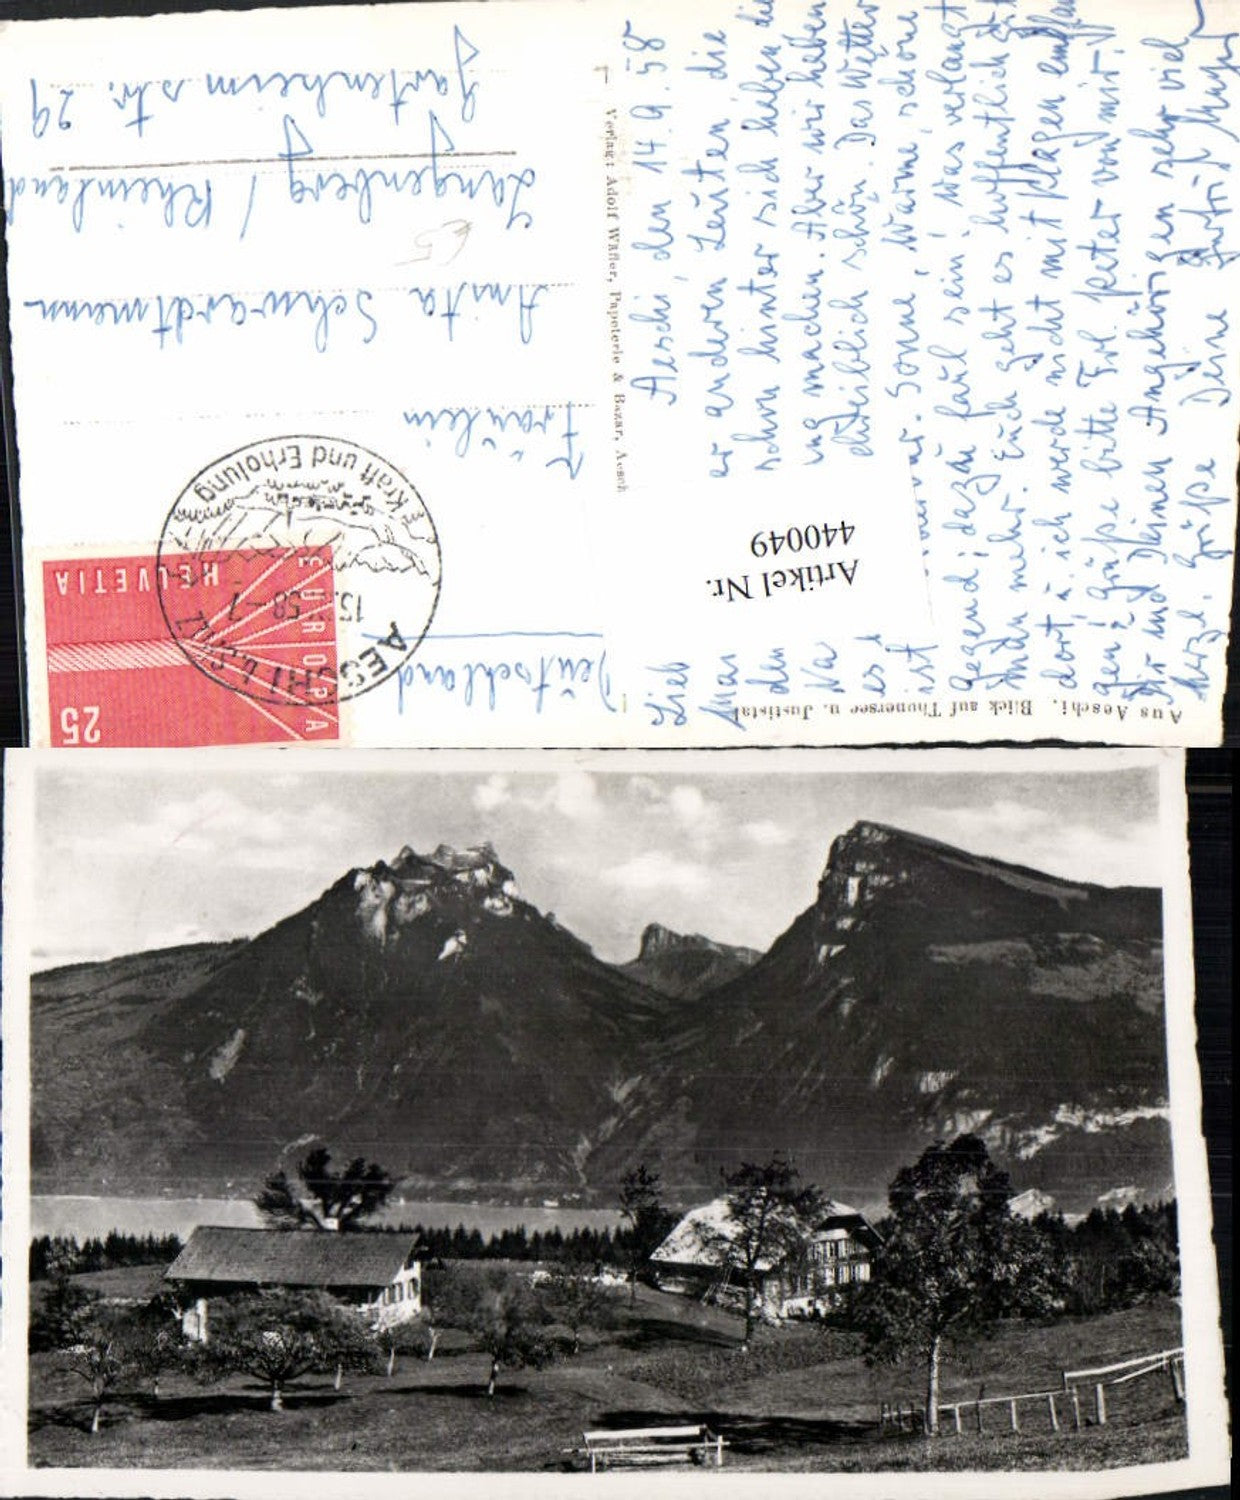 Aus Aeschi. Blick auf Thunersee u. Justistal
Verlag: Adolf Wäfler, Papeterie & Bazar, Aeschi
Aeschi, den 14.9.58
Lieb
er anderen Leuten die
den schon hinter sich haben die
machen. Aber wir haben
es schön. Das Wetter
ist Sonne, warme, schöne
Gegend; dazu faul sein, was verlangt
man mehr. Euch geht es hoffentlich gut
dort u. ich werde nicht mit Klagen
gen! Grüße bitte Frl. Peter von mir.
Dir und Deinen Angehörigen sehr viel
herzl. Grüße Deine
HELVETIA
EUROPA
25
AESCHI b. SPIEZ
15. 58-7
Kraft und Erholung
Fräulein
Anita Schwardtmann
Langenberg / Rheinland
Gartenheimstr. 29
Deutschland
Artikel Nr.
440049
£5